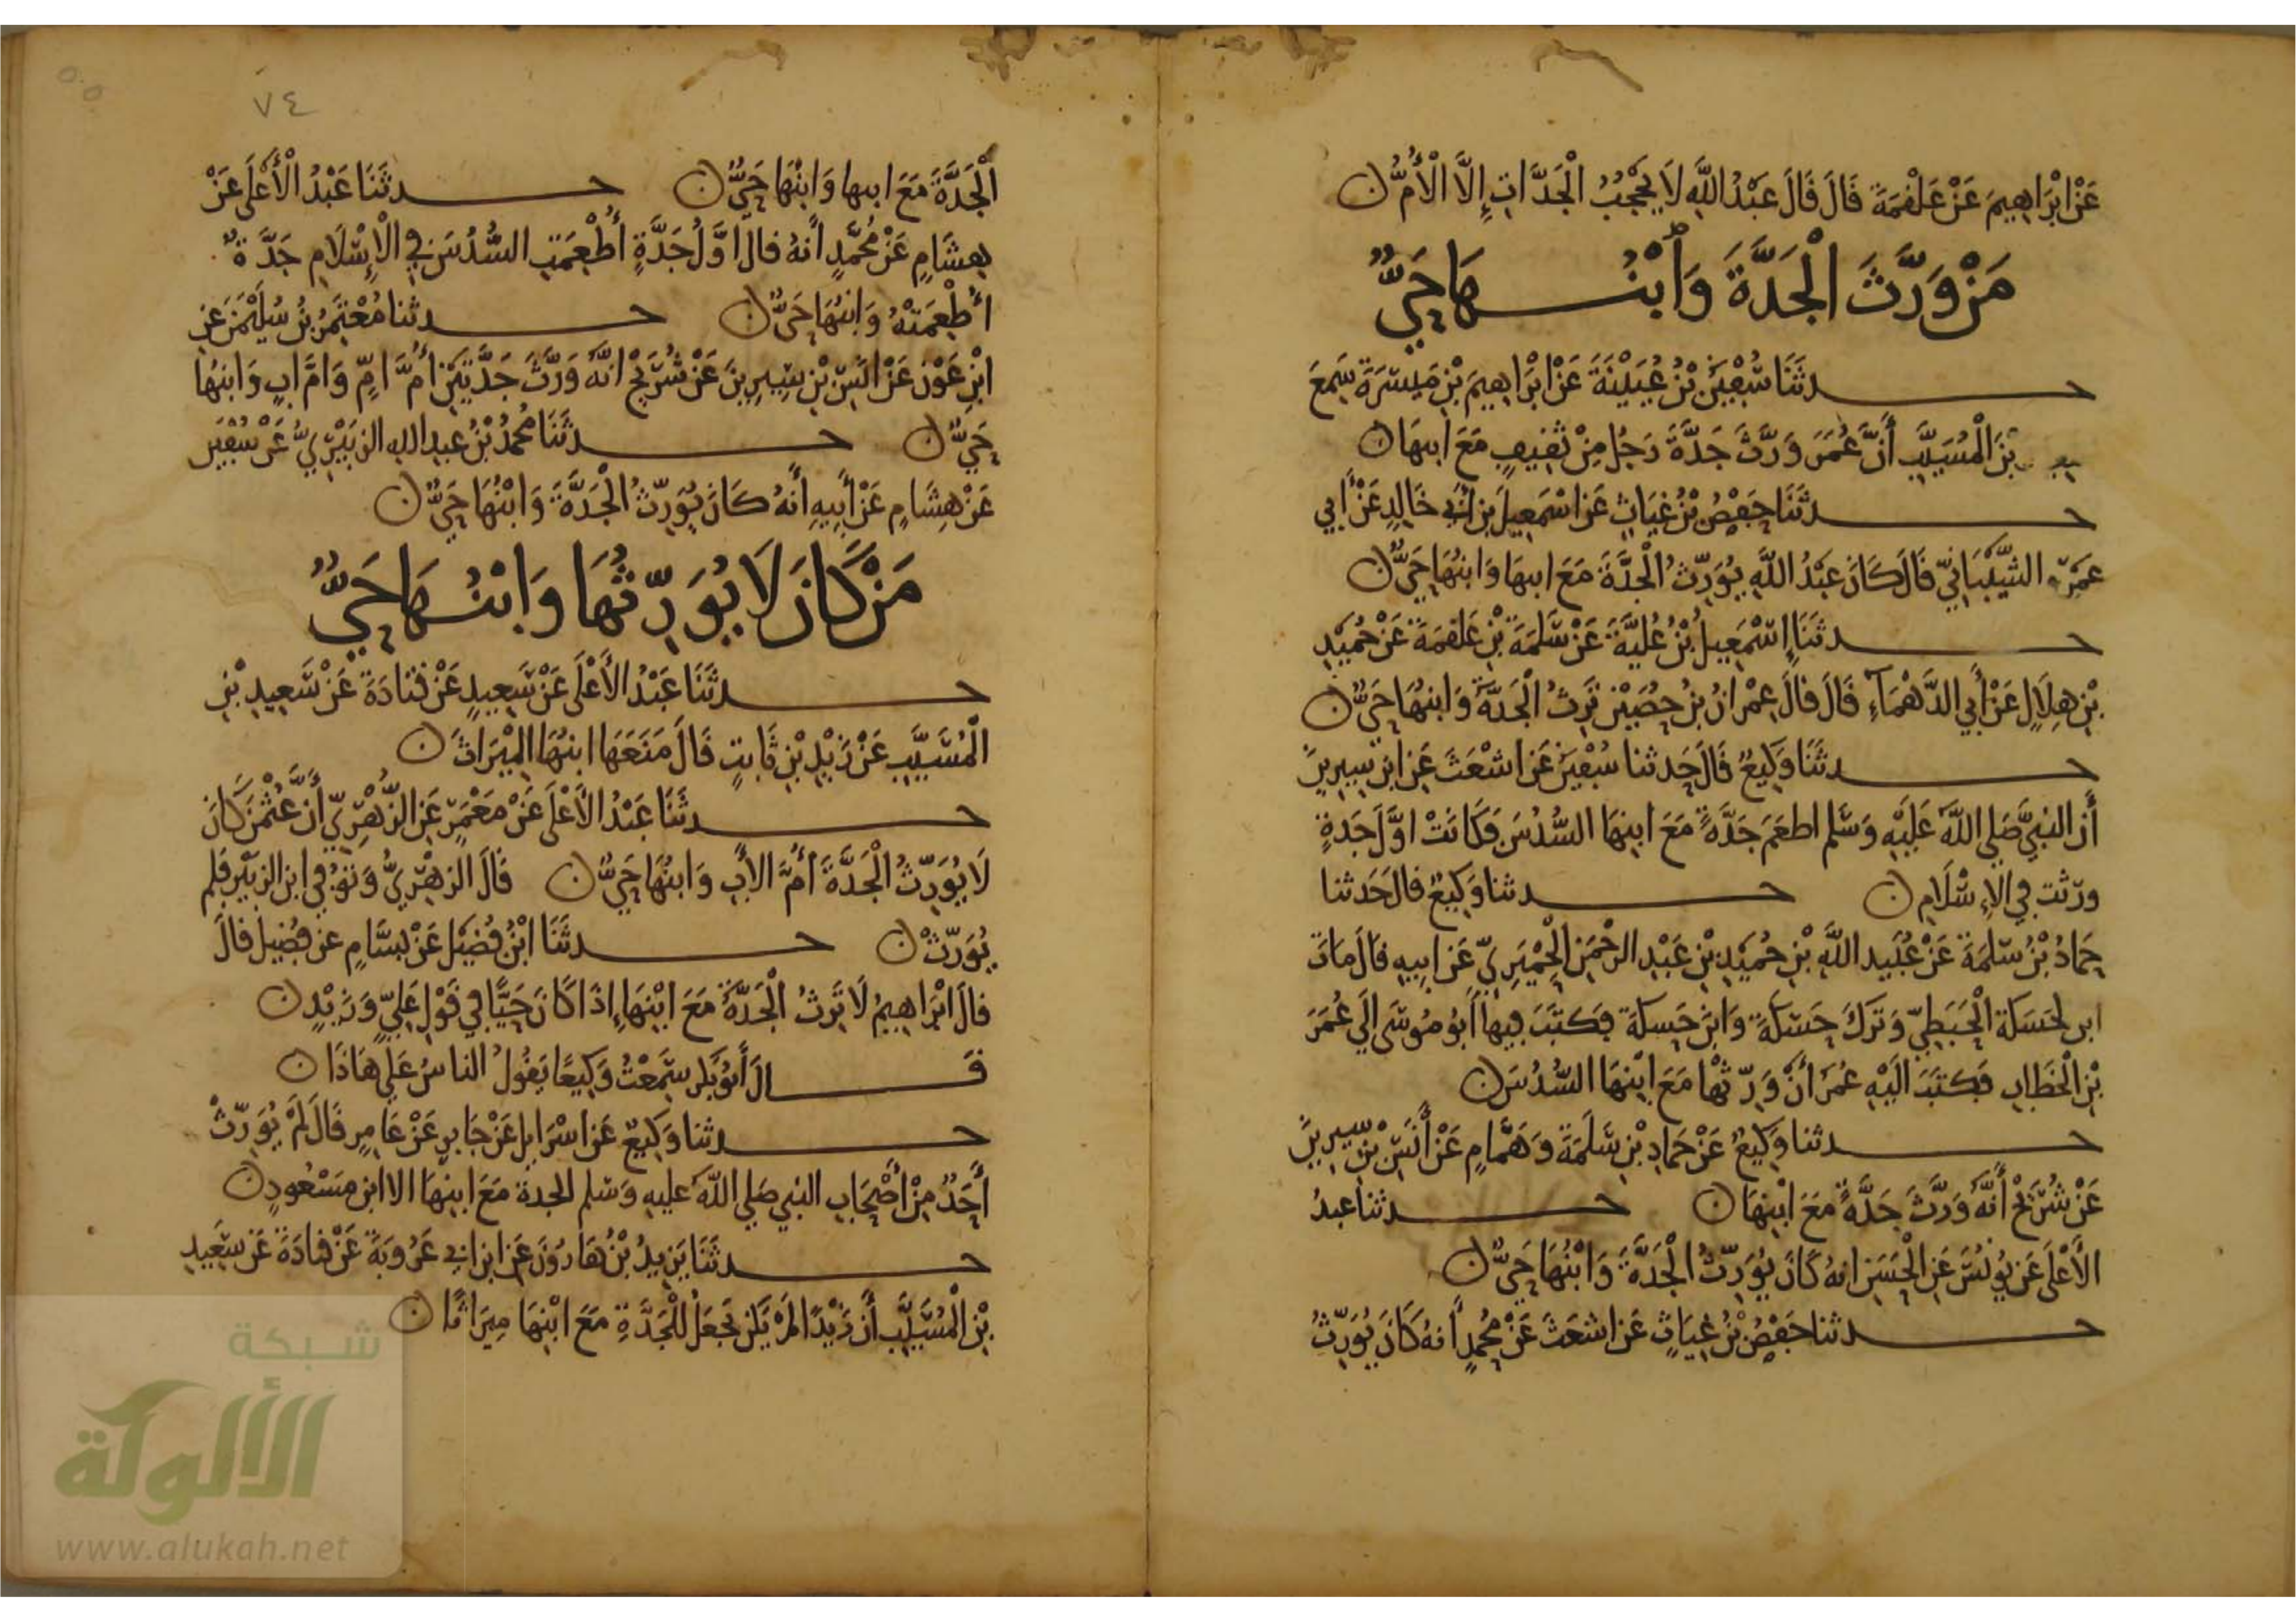 عَنْ ابْرَاهِيمَ عَنْ عَلْقمَةَ قَالَ قَالَ عَبْدُ اللَّهِ لَا يَحْجُبُ الْجَدَّاتِ إِلَّا الْأُمُّ ن
مَنْ وَرَّثَ الْجَدَّةَ وَابْنُهَا حَيٌّ
حدثَنَا سُفْيَنُ بْنُ عُيَيْنَةَ عَنْ ابْرَاهِيمَ بْنِ مَيْسَرَةَ سَمِعَ
بْنَ الْمُسَيَّبِ أَنَّ عُمَرَ وَرَّثَ جَدَّةَ رَجُلٍ مِنْ ثَقِيفٍ مَعَ ابنهَا ن
حدثَنَا حَفْصُ بْنُ غِيَاثٍ عَنْ اسْمَعِيلَ بن أَبِي خَالِدٍ عَنْ أَبِي
عَمْرٍو الشَّيْبَانِيِّ قَالَ كَانَ عَبْدُ اللَّهِ يُوَرِّثُ الْجَدَّةَ مَعَ ابنهَا وَابنُهَا حَيٌّ ن
حدثَنَا إِسْمَعِيلُ بْنُ عُلَيَّةَ عَنْ سَلَمَةَ بْنِ عَلقَمَةَ عَنْ حُمَيْدِ
بْنِ هِلَالٍ عَنْ أَبِي الدَّهْمَاءِ قَالَ قَالَ عِمْرانُ بْنُ حُصَيْنٍ تَرِثُ الْجَدَّةُ وَابنُهَا حَيٌّ ن
حدثَنَا وَكِيعٌ قَالَ حَدثنا سُفْيَنُ عَنْ اشْعَثَ عَنِ ابْنِ سِيرِينَ
أَن النبيَّ صَلى اللَّه عَلَيْهِ وَسَلم اطعَمَ جَدَّةً مَعَ ابنِهَا السُّدُسَ فَكَانَتْ اوَّلَ جَدةٍ
ورّثت فِي الإِسْلَامِ ن حدثنا وَكِيعٌ قالَ حَدثنا
حَمادُ بْنُ سَلَمَةَ عَنْ عُبَيد اللَّهِ بْنِ حُمَيْدِ بْنِ عَبْدِ الرحْمَنِ الْحِمْيَرِيِّ عَنْ ابِيهِ قَالَ مَاتَ
ابن لحَسَكَة الْحَبَطِيِّ وَتَرَكَ حَسَكَةَ وَابْنَ حَسكَةَ فكَتَبَ فِيهَا أَبُو مُوسَى إلَى عُمَرَ
بْنِ الْخَطَّابِ فَكتَبَ الَيْهِ عُمَرُ أَنْ وَرِّثْهَا مَعَ ابْنِهَا السُّدُسَ ن
حدثنا وَكِيعٌ عَنْ حَمادِ بْنِ سَلَمَةَ وَهَمَّامٍ عَنْ أَنَسِ بْنِ سِيرِينَ
عَنْ شُرَيْحٍ أَنَّهُ وَرَّثَ جَدَّةً مَعَ ابْنِهَا ن حدثنا عبدُ
الأَعْلَى عَنْ يُونُسَ عَنِ الْحَسَنِ انهُ كَانَ يُوَرِّثُ الْجَدَّةَ وَابْنُهَا حَيٌّ ن
حدثنا حَفْصُ بْنُ غِيَاثٍ عَنْ اشعَثَ عَنْ مُحمدٍ أَنهُ كَانَ يُوَرِّثُ
٧٤
الْجَدَّةَ مَعَ ابنها وَابْنُهَا حَيٌّ ن حدثَنَا عَبْدُ الْأَعْلَى عَنْ
هِشَامٍ عَنْ مُحَمَّدٍ أَنهُ قالَ اوَّلُ جَدَّةٍ أُطْعِمَتِ السُّدُسَ فِي الْإِسْلَامِ جَدَّةٌ
أُطْعِمَتْهُ وَابنُهَا حَيٌّ ن حدثنا مُعْتَمِرُ بْنُ سُلَيْمَنَ عَنِ
ابْنِ عَوْنٍ عَنْ انَسِ بْنِ سِيرِينَ عَنْ شُرَيْحٍ انَّهُ وَرَّثَ جَدَّتَيْنِ أُمَّ امٍّ وَامَّ ابٍ وَابنُهَا
حَيٌّ ن حدثَنَا مُحمدُ بْنُ عبد الله الزبَيْرِيُّ عَنْ سُفْيَن
عَنْ هِشَامٍ عَنْ أَبِيهِ أَنهُ كَانَ يُوَرِّثُ الْجَدَّةَ وَابْنُهَا حَيٌّ ن
مَنْ كَانَ لَا يُوَرِّثُهَا وَابْنُهَا حَيٌّ
حدثَنَا عَبْدُ الأَعْلَى عَنْ سَعِيدٍ عَنْ قتادَةَ عَنْ سَعِيدِ بْنِ
الْمُسَيَّبِ عَنْ زَيْدِ بْنِ ثَابِتٍ قَالَ مَنَعَهَا ابنُهَا الْمِيْرَاثَ ن
حدثَنَا عَبْدُ الأَعْلَى عَنْ مَعْمَرٍ عَنِ الزُّهْرِيِّ أَنَّ عُثْمَنَ كَانَ
لَا يُوَرِّثُ الْجَدَّةَ أُمَّ الأَبِ وَابنُهَا حَيٌّ ن قَالَ الزهْرِيُّ وَتوُفي ابن الزبَيْر فلم
يُوَرِّثْ ن حدثَنَا ابْنُ فُضَيْلٍ عَنْ بسَّامٍ عن فُضَيلٍ قالَ
قالَ ابْرَاهِيمُ لَا تَرِثُ الْجَدَّةُ مَعَ ابْنِهَا إِذَا كَانَ حَيًّا فِي قَوْلِ عَلِيٍّ وَزَيْدٍ ن
قَالَ أَبُو بَكرٍ سَمِعْتُ وَكِيعًا يَقُولُ الناسُ عَلَى هَاذَا ن
حدثنا وَكِيعٌ عَنْ اسْرَايِل عَنْ جَابِرٍ عَنْ عَامِرٍ قَالَ لَمْ يُوَرِّثْ
أَحَدٌ مِنْ أَصْحَابِ النبي صَلى اللَّه عليه وَسَلم الجدةَ مَعَ ابنِهَا الا ابن مَسْعُودٍ ن
حدثَنَا يَزِيدُ بْنُ هَارُونَ عَنِ ابن ابي عَرُوبَةَ عَنْ قتادَةَ عَنْ سَعِيدِ
بْنِ الْمُسَيَّبِ أَن زَيْدًا لَمْ يَكن يَجْعَلُ لِلْجَدَّةِ مَعَ ابْنِهَا مِيرَاثًا ن
شبكة
الألوكة
www.alukah.net